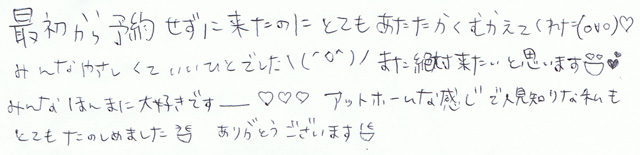 最初から予約せずに来たのにとてもあたたかくむかえてくれた(ovo)♡
みんなやさしくていいひとでした\(^o^)/ また絶対来たいと思います♥
みんなほんまに大好きです―♡♡♡ アットホームな感じで人見知りな私も
とてもたのしめました ありがとうございます